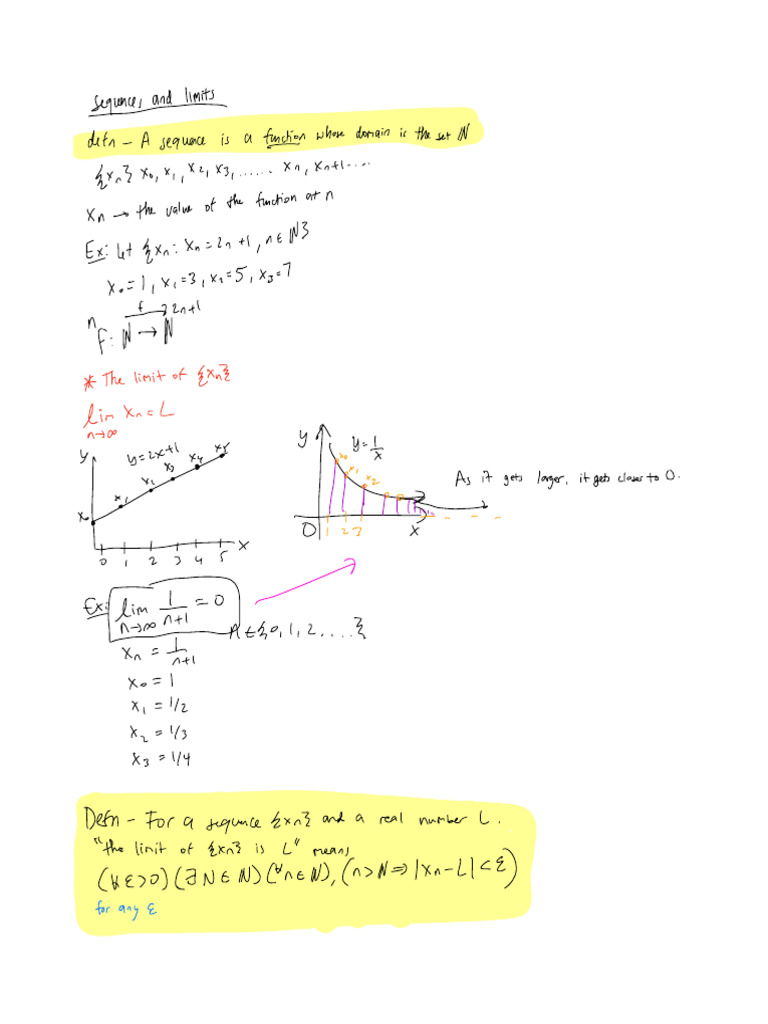 Sequences and limits
defn - A sequence is a function whose domain is the set ℕ
{xₙ} x₀, x₁, x₂, x₃, ...... xₙ, xₙ₊₁....
xₙ → the value of the function at n
Ex: Let {xₙ: xₙ = 2n+1, n∈ℕ}
x₀=1, x₁=3, x₂=5, x₃=7
n f→ 2n+1
F: ℕ → ℕ
* The limit of {xₙ}
lim xₙ = L
n→∞
y
y=2x+1
x₀ x₁ x₂ x₃ x₄ x₅
0 1 2 3 4 5 x
y
y=1/x
x₀ x₁ x₂
0 1 2 3 x
As it gets larger, it gets closer to 0.
Ex: lim 1/(n+1) = 0
n→∞
n∈{0, 1, 2, ....}
xₙ = 1/(n+1)
x₀ = 1
x₁ = 1/2
x₂ = 1/3
x₃ = 1/4
Defn - For a sequence {xₙ} and a real number L.
"the limit of {xₙ} is L" means
(∀ε>0)(∃N∈ℕ)(∀n∈ℕ), (n>N ⇒ |xₙ-L|<ε)
for any ε